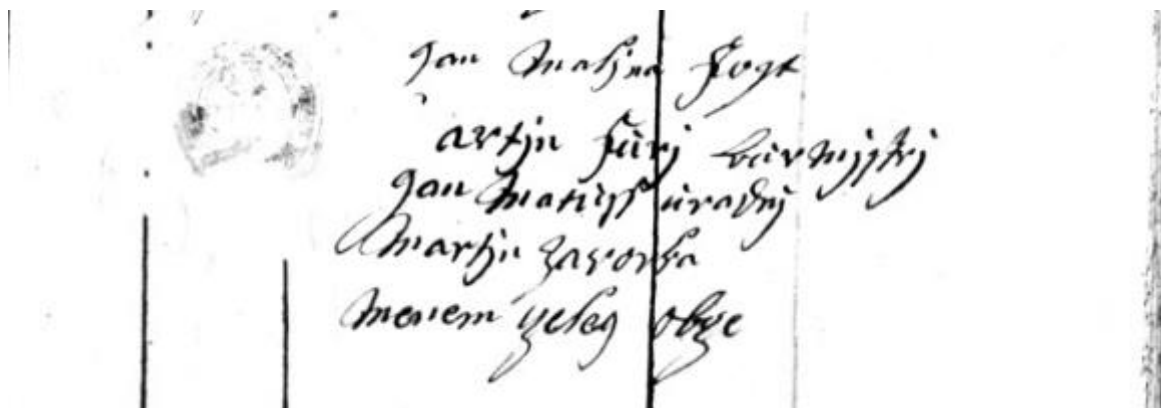 Jan Malina Fogt
artin Jurj burmystrj
Jan Matuss uradnj
Martin Zavorka
menem zeleg obze